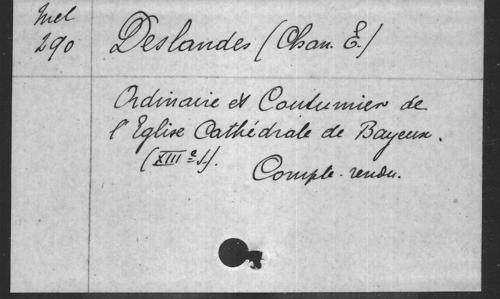 Mel
290
Deslandes (Chan. E.)
Ordinaire et Coutumier de
l'Eglise Cathédrale de Bayeux.
(XIII e s.).
Compte-rendu.